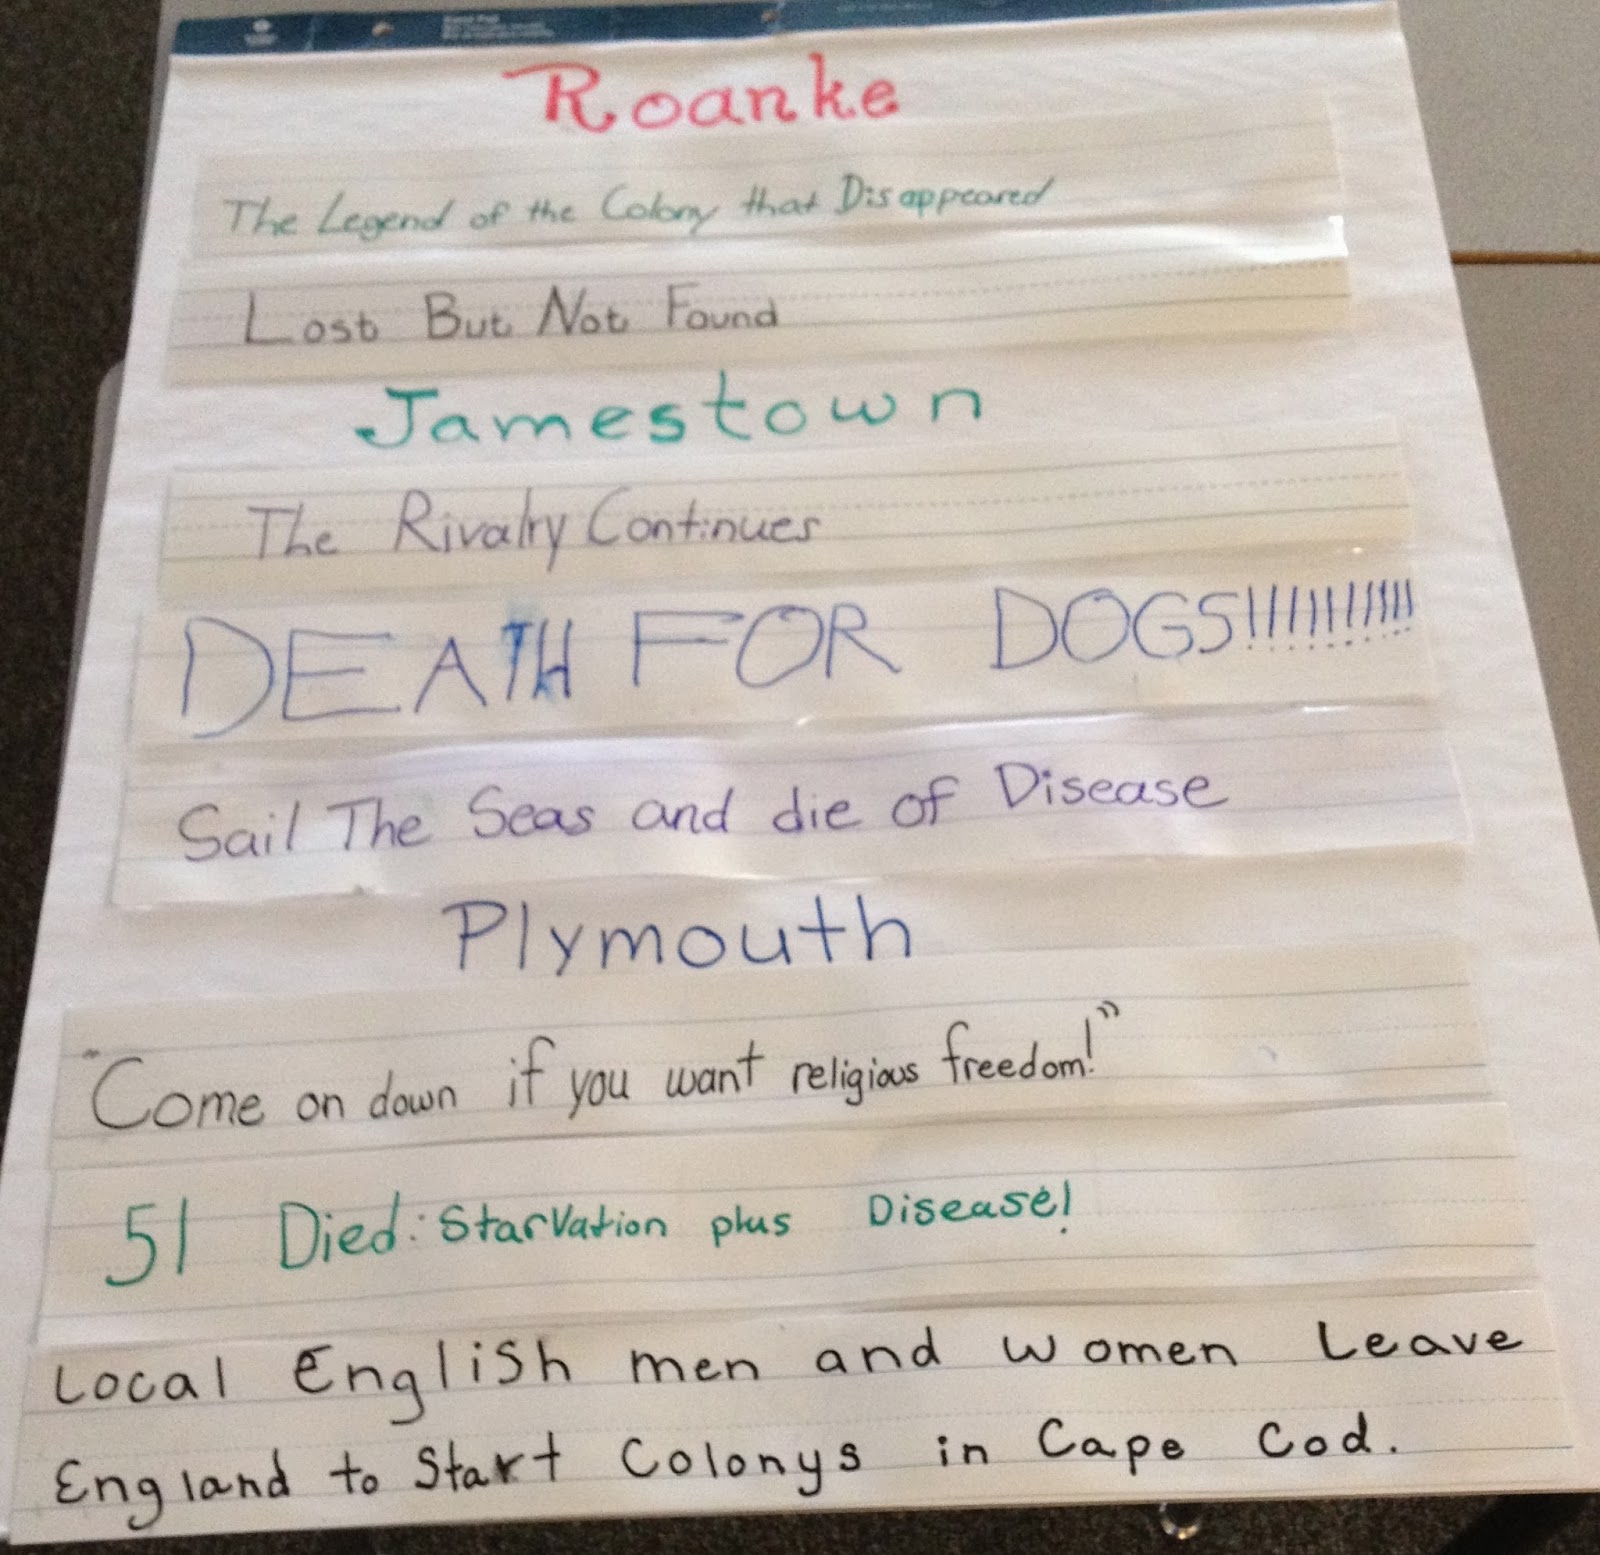 Roanke
The Legend of the Colony that Disappeared
Lost But Not Found
Jamestown
The Rivalry Continues
DEATH FOR DOGS!!!!!!!!!!!
Sail The Seas and die of Disease
Plymouth
"Come on down if you want religious freedom!"
51 Died: Starvation plus Disease!
Local English men and women Leave
England to Start Colonys in Cape Cod.